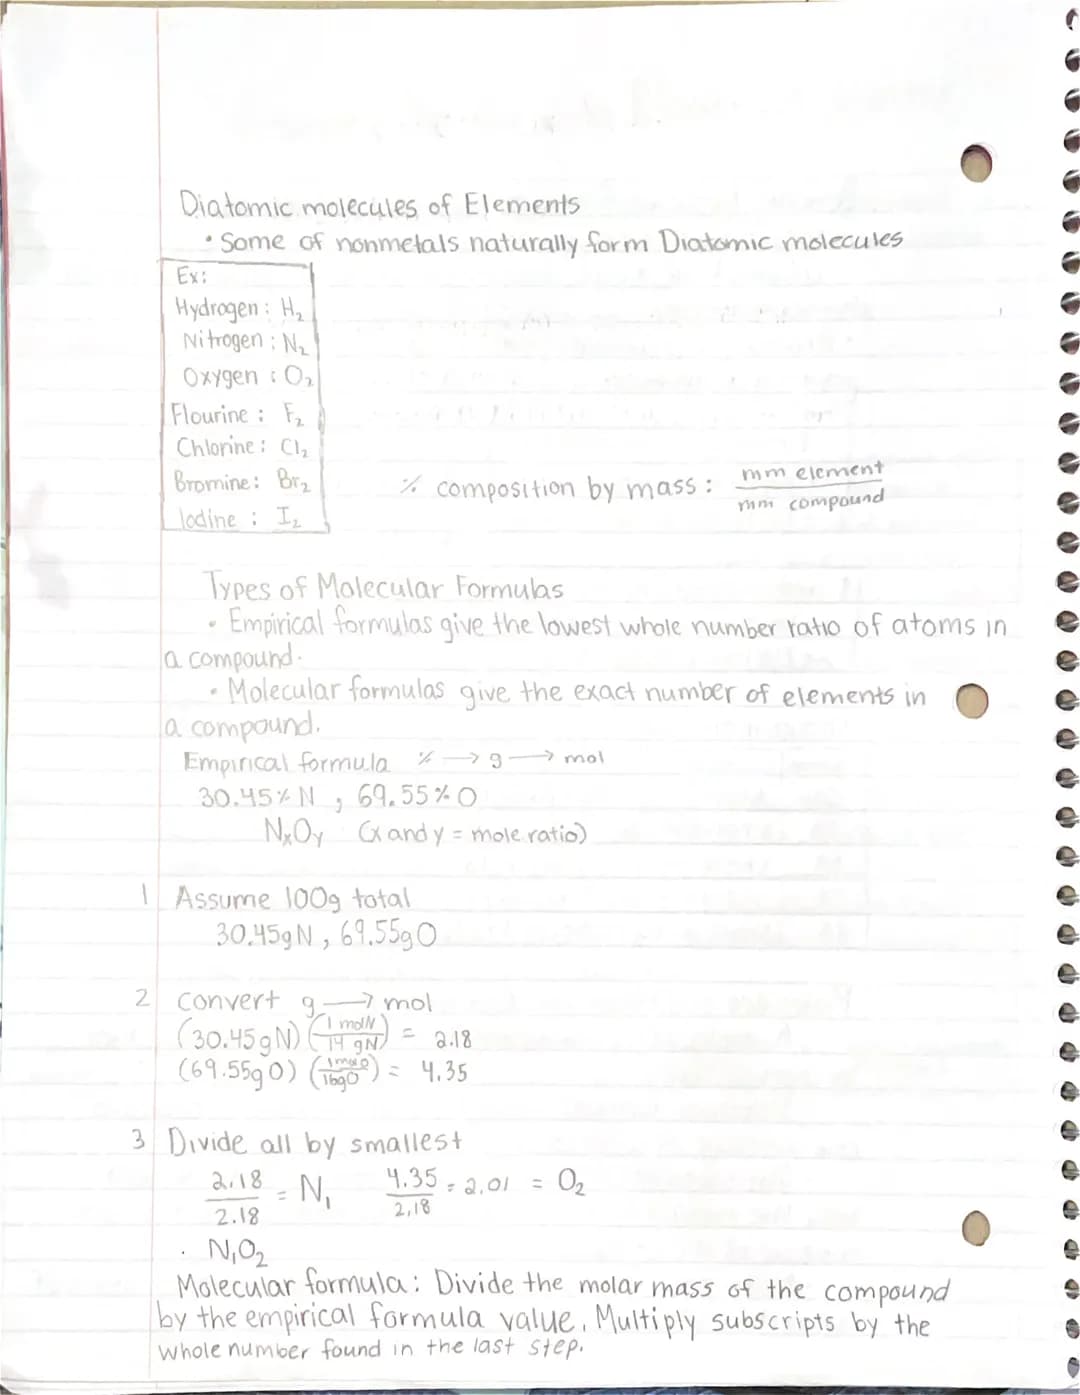 Diatomic molecules of Elements
• Some of nonmetals naturally form Diatomic molecules
Ex:
Hydrogen : H₂
Nitrogen : N₂
Oxygen : O₂
Flourine : F₂
Chlorine : Cl₂
Bromine : Br₂
Iodine : I₂
% composition by mass : mm element / mm compound
Types of Molecular Formulas
• Empirical formulas give the lowest whole number ratio of atoms in
a compound.
• Molecular formulas give the exact number of elements in
a compound.
Empirical formula % → g → mol
30.45% N , 69.55% O
NxOy (x and y = mole ratio)
1 Assume 100g total
30.45g N , 69.55g O
2 convert g → mol
(30.45 g N) (1 mol N / 14 g N) = 2.18
(69.55g O) (1 mol O / 16g O) = 4.35
3 Divide all by smallest
2.18 / 2.18 = N₁ 4.35 / 2.18 = 2.01 = O₂
. N₁O₂
Molecular formula : Divide the molar mass of the compound
by the empirical formula value. Multiply subscripts by the
whole number found in the last step.